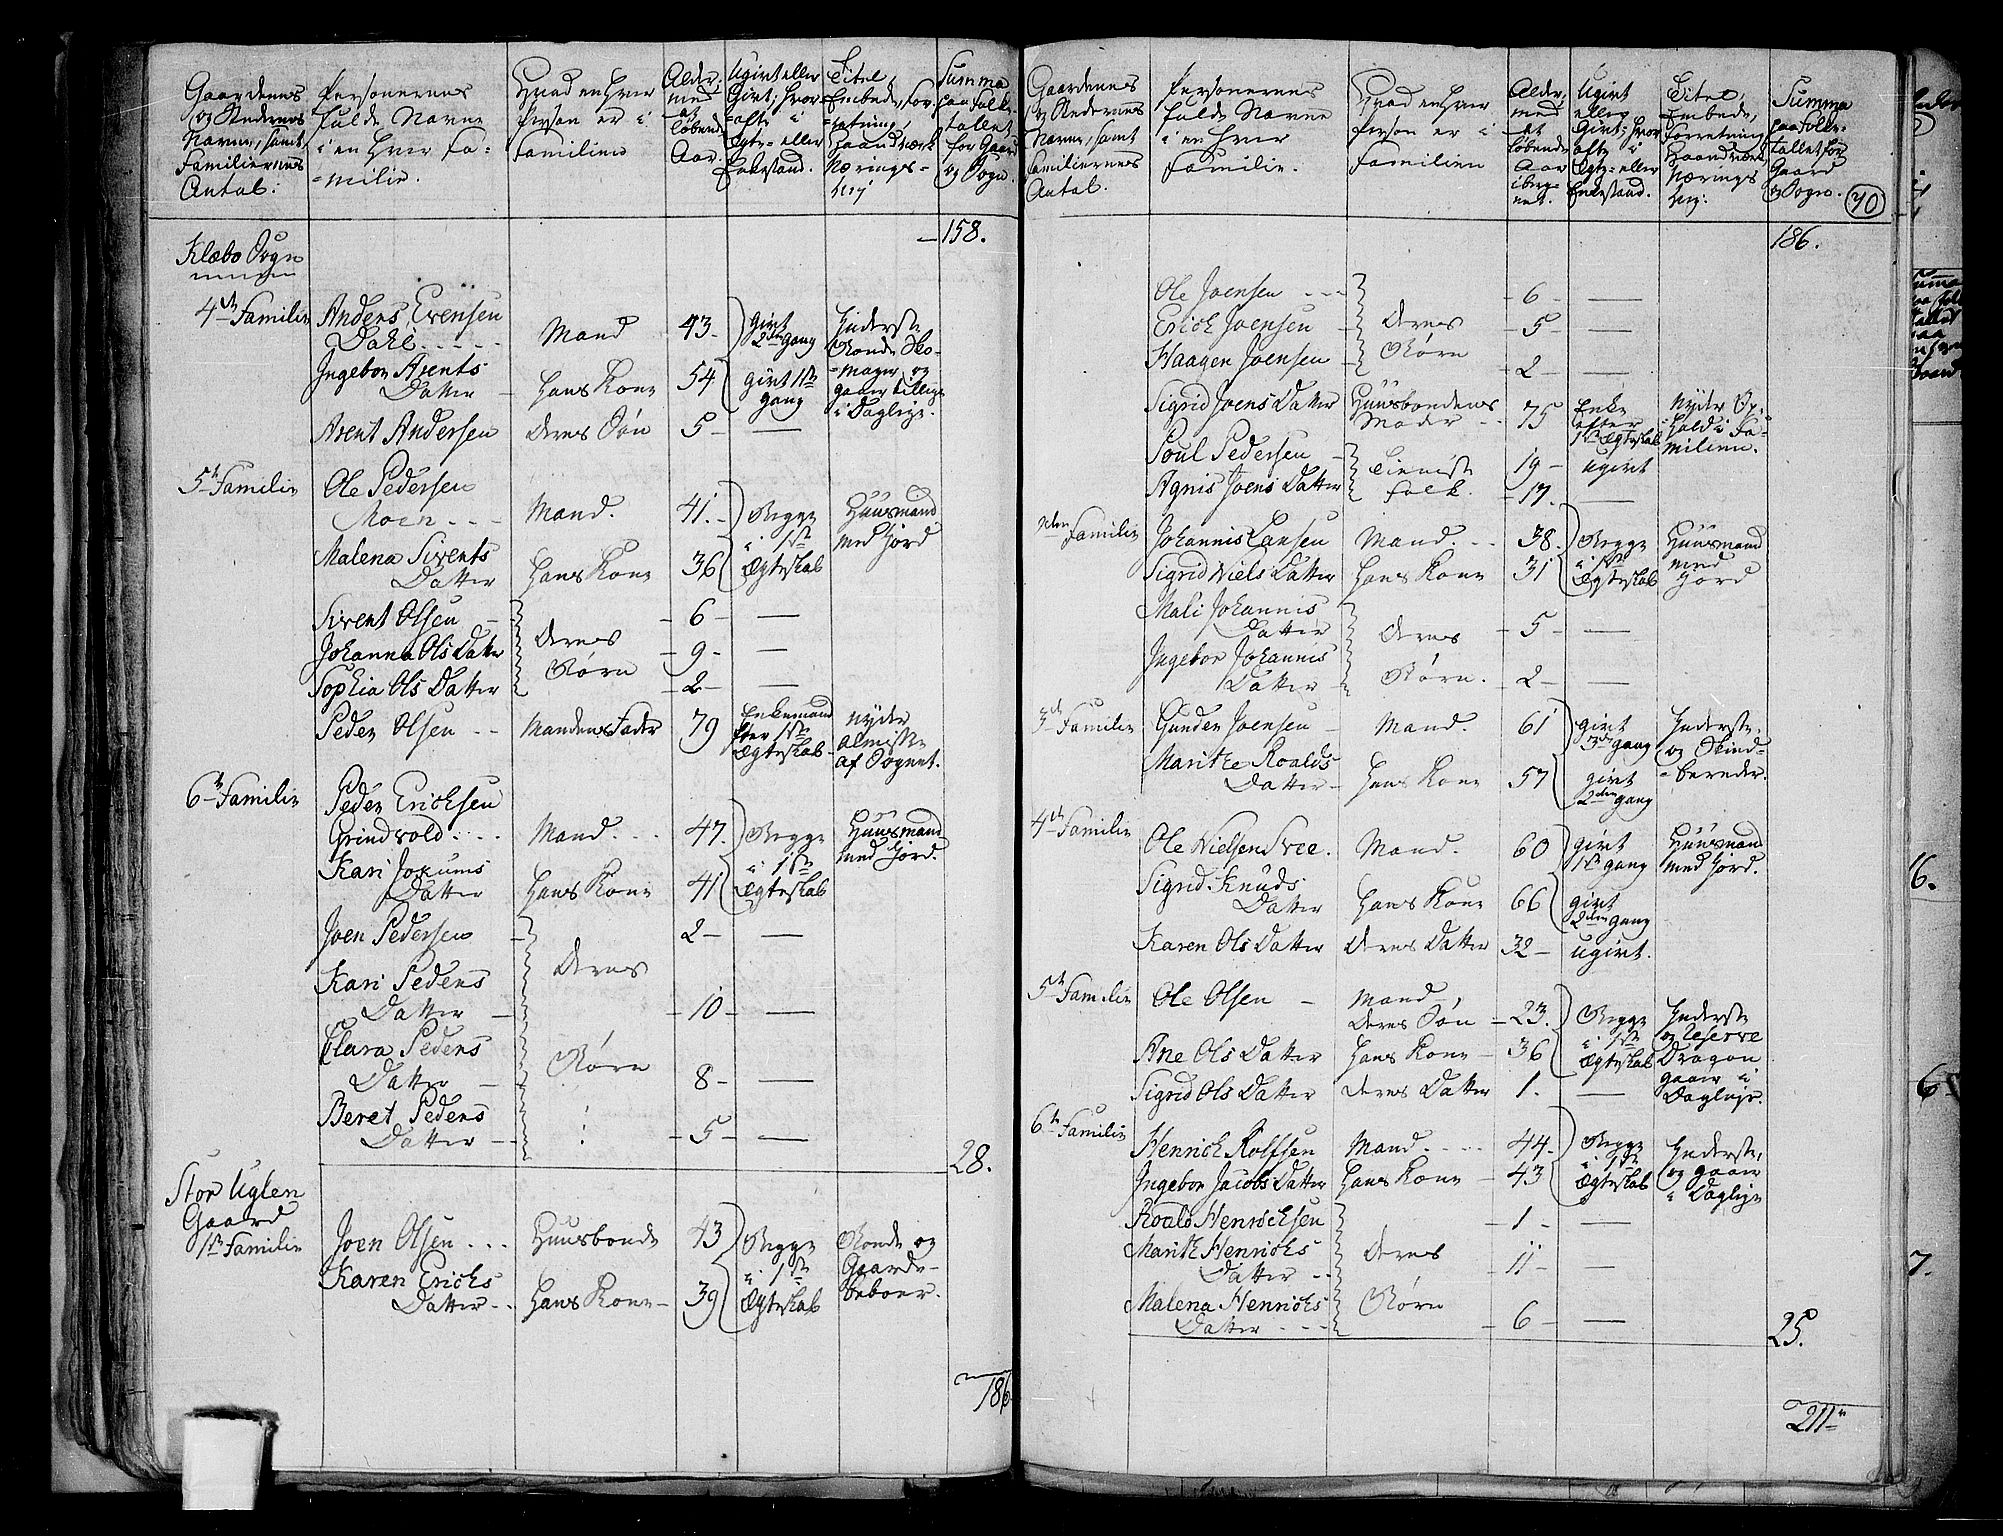 Gaardenes
og Stedernes
Navne, samt
Familiernes
Antal.
Personernes
fulde Navne
i en hver Fa=
=milie.
Hvad en hver
Person er i
Familien
Alder,
med
at
løbende
Aar.
Ugivt eller
Givt; hvor
=ofte i
Egte= eller
Enkestand.
Titel
Embede, For=
=retning,
Haandværk
Nærings=
Vej
Summa
paa Folke=
tallet
for Gaard
og Sogn.
158.
Klæbo Sogn
4de Familie
Anders Evensen
Dahl
Mand
43
givt
2den gang
Inderste
Bonde Sko=
=mager og
gaaer tillige
i Daglejе.
Ingebor Arents
Datter
Hans Kone
54
givt 1ste
gang
Arent Andersen
Deres Søn
5
5te Familie
Ole Pedersen
Moen
Mand.
41.
Begge
i 1ste
Egteskab
Huusmand
med Jord
Malena Sivents
Datter
Hans Kone
36
Sivent Olsen
6
Johanna Ols Datter
Deres
9
Sophia Ols Datter
Børn
2
Peder Olsen
Mandens Fader
79
Enkemand
efter 1ste
Egteskab
nyder
almisse
af Sognet.
6te Familie
Peder Erichsen
Grindvold
Mand.
47.
Begge
i 1ste
Egteskab
Huusmand
med Jord.
Kari Jokums
Datter
Hans Kone
41
Joen Pedersen
2
Kari Peders
Datter
Deres
10
Clara Peders
Datter
Børn
8
Beret Peders
Datter
5
28.
Stor Uglen
Gaard
1ste Familie
Joen Olsen
Huusbonde
43
Begge
i 1ste
Egteskab
Bonde og
Gaarde=
beboer.
Karen Erichs
Datter
Hans Kone
39
186
Gaardenes
og Stedernes
Navne, samt
Familiernes
Antal.
Personernes
fulde Navne
i en hver
Familie.
Hvad en hver
Person er i
Familien
Alder,
med
at
løbende
Aar
ibereg=
net.
Ugivt
eller
Givt; hvor
ofte i
Egte= eller
Enkestand.
Titel,
Embede,
Forretning
Haandværk
Nærings
Vej:
Summa
paa Folke=
tallet for
Gaard
og Sogn.
70
186.
Ole Joensen
6
Erich Joensen
Deres
5
Haagen Joensen
Børn
2
Sigrid Joens Datter
Huusbondens
Moder
75
Enke
efter
1ste Egteskab
nyder Op=
hold i Fa=
milien.
Poul Pedersen
Tieniste
19
ugivt
Agnis Joens Datter
folk.
17.
2den Familie
Johannis Lansen
Mand.
38.
Begge
i 1ste
Egteskab
Huusmand
med
Jord
Sigrid Niels Datter
Hans Kone
31
Mali Johannis
Datter
Deres
5
Ingebor Johannis
Datter
Børn.
2
3de Familie
Gunder Joensen
Mand.
61
givt
3die gang
Inderste,
og Skind=
=bereder.
Marithe Roalds
Datter
Hans Kone
57
givt
2den gang
4de Familie
Ole Nielsen Svee.
Mand.
60
givt
1ste gang
Huusmand
med Jord.
Sigrid Knuds
Datter
Hans Kone
66
givt
2den gang
Karen Ols Datter
Deres Datter
32
ugivt.
5te Familie
Ole Olsen
Mand,
Deres Søn
23.
Begge
i 1ste
Egteskab
Inderste
og reserve
Dragon
gaaer i
Dagleje.
Ane Ols Datter
Hans Kone
36
Sigrid Ols Datter
Deres Datter
1.
6te Familie
Henrich Rolfsen
Mand.
44.
Begge
i 1ste
Egteskab
Inderste,
og gaaer
i Dagleje
Ingebor Jacobs Datter
Hans Kone
43
Roald Henrichsen
1
Marith Henrichs
Datter
Deres
11
Malena Henrichs
Datter
Børn
6
25.
211
6.
6
7.